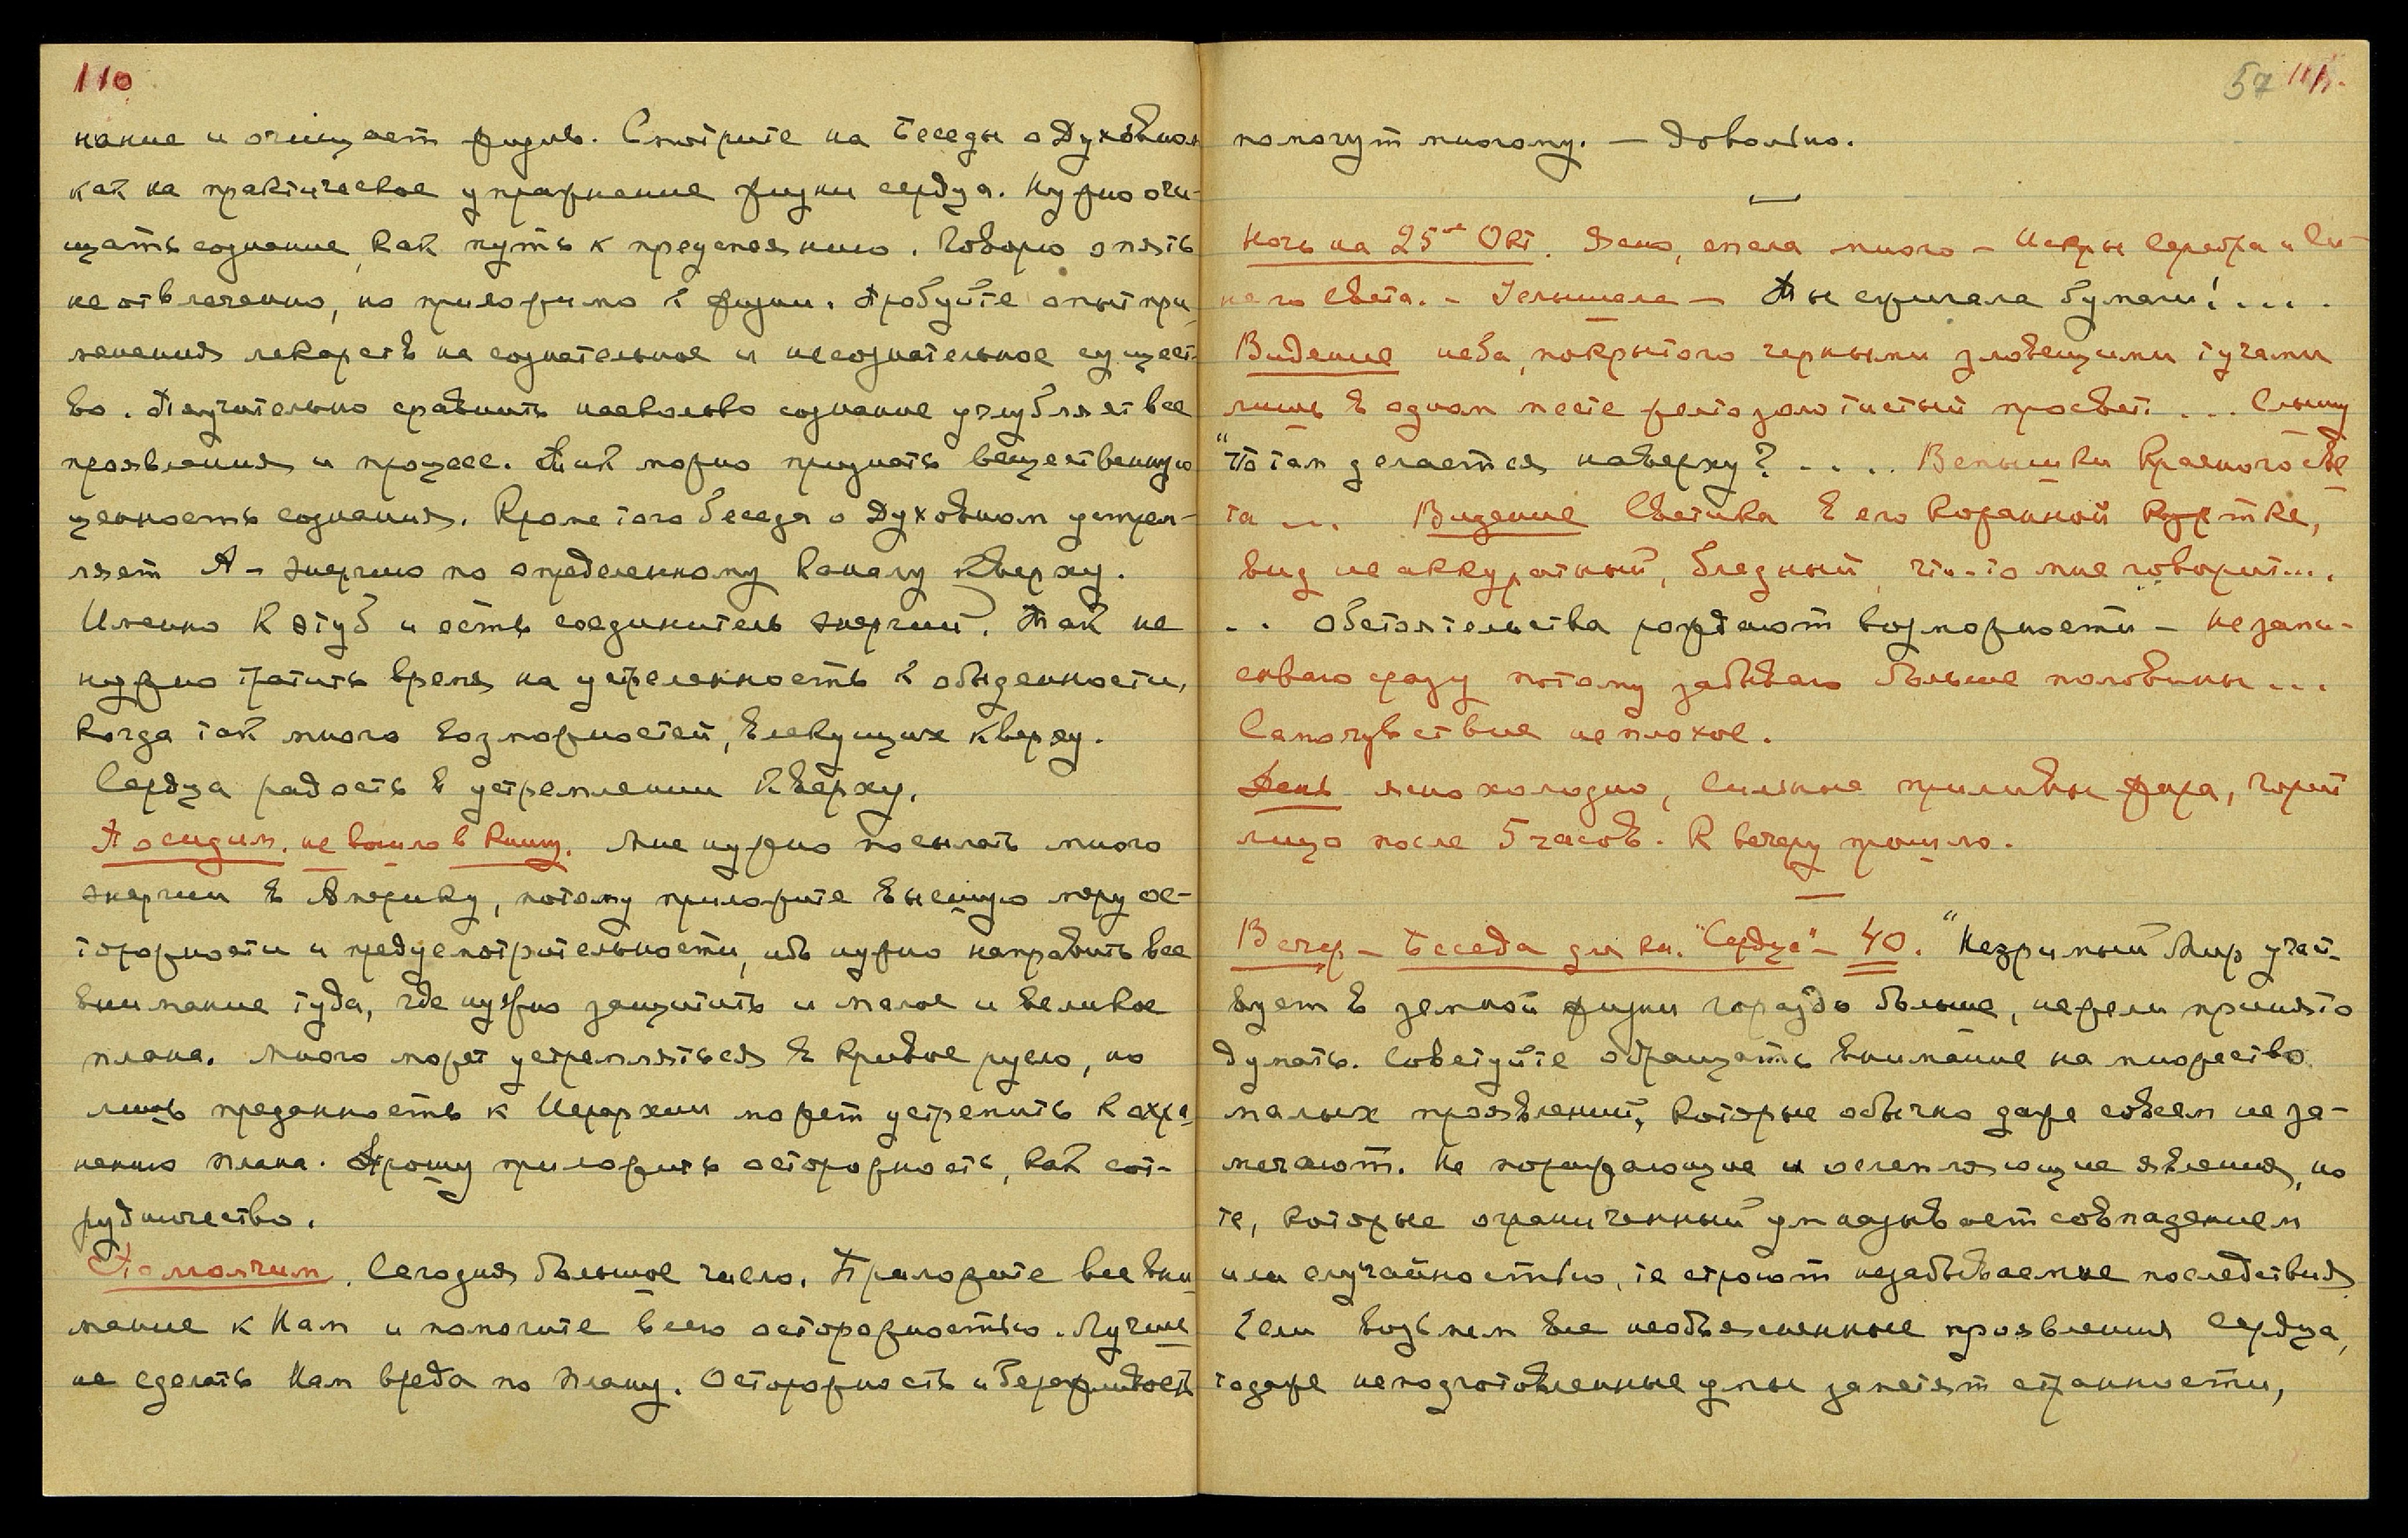 110
нание и очищает жизнь. Смотрите на Беседы о Духовном
как на практическое упражнение жизни сердца. Нужно очи-
щать сознание, как путь к преуспеянию. Говорю опять
не отвлеченно, но приложимо к жизни. Пробуйте опыт при-
менения лекарств на сознательное и несознательное сущест-
во. Поучительно сравнить насколько сознание углубляет все
проявления и процесс. Так можно признать вещественную
ценность сознания. Кроме того беседа о Духовном устрем-
ляет А-энергию по определенному каналу кверху.
Именно Кэтуб и есть соединитель энергий. Так не
нужно тратить время на устремленность к обыденности,
когда так много возможностей, влекущих кверху.
Сердца радость в устремлении кверху.
Посидим. не вошло в книгу. Мне нужно посылать много
энергии в Америку, потому приложите высшую меру ос-
торожности и предусмотрительности, ибо нужно направить все
внимание туда, где нужно защитить и малое и великое
плана. Много может устремляться в кривое русло, но
лишь преданность к Иерархии может устремить к охра-
нению плана. Прошу приложить осторожность, как сот-
рудничество.
Помолчим. Сегодня большое число. Приложите все вни-
мание к Нам и помогите всею осторожностью. Лучше
не сделать Нам вреда по плану. Осторожность и бережливость
57 111.
помогут многому. — Довольно.
Ночь на 25ое Окт. Ясно, спала много — Искры серебра и Си-
него света. - Услышала — Ты сжигала бумаги!....
Видение неба, покрытого черными зловещими тучами
лишь в одном месте желто золотистый просвет... Слышу
"Что там делается наверху?.... Вспышки Красного све
та ... Видение Светика в его кожанной куртке,
вид не аккуратный, бледный, что-то мне говорит....
.. Обстоятельства рождают возможности — не запи-
сываю сразу потому забываю больше половины...
Самочувствие не плохое.
День ясно холодно, сильные приливы жара, горит
лицо после 5 часов. К вечеру прошло.
Вечер — Беседа для кн. "Сердце" — 40. "Незримый Мир участ-
вует в земной жизни гораздо больше, нежели принято
думать. Советуйте обращать внимание на множество
малых проявлений, которые обычно даже совсем не за-
мечают. Не поражающие и ослепляющие явления, но
те, которые ограниченный ум называет совпадением
или случайностью, те строют незабываемые последствия
Если возьмем все необъясненные проявления Сердца,
то даже неподготовленные умы заметят странности,